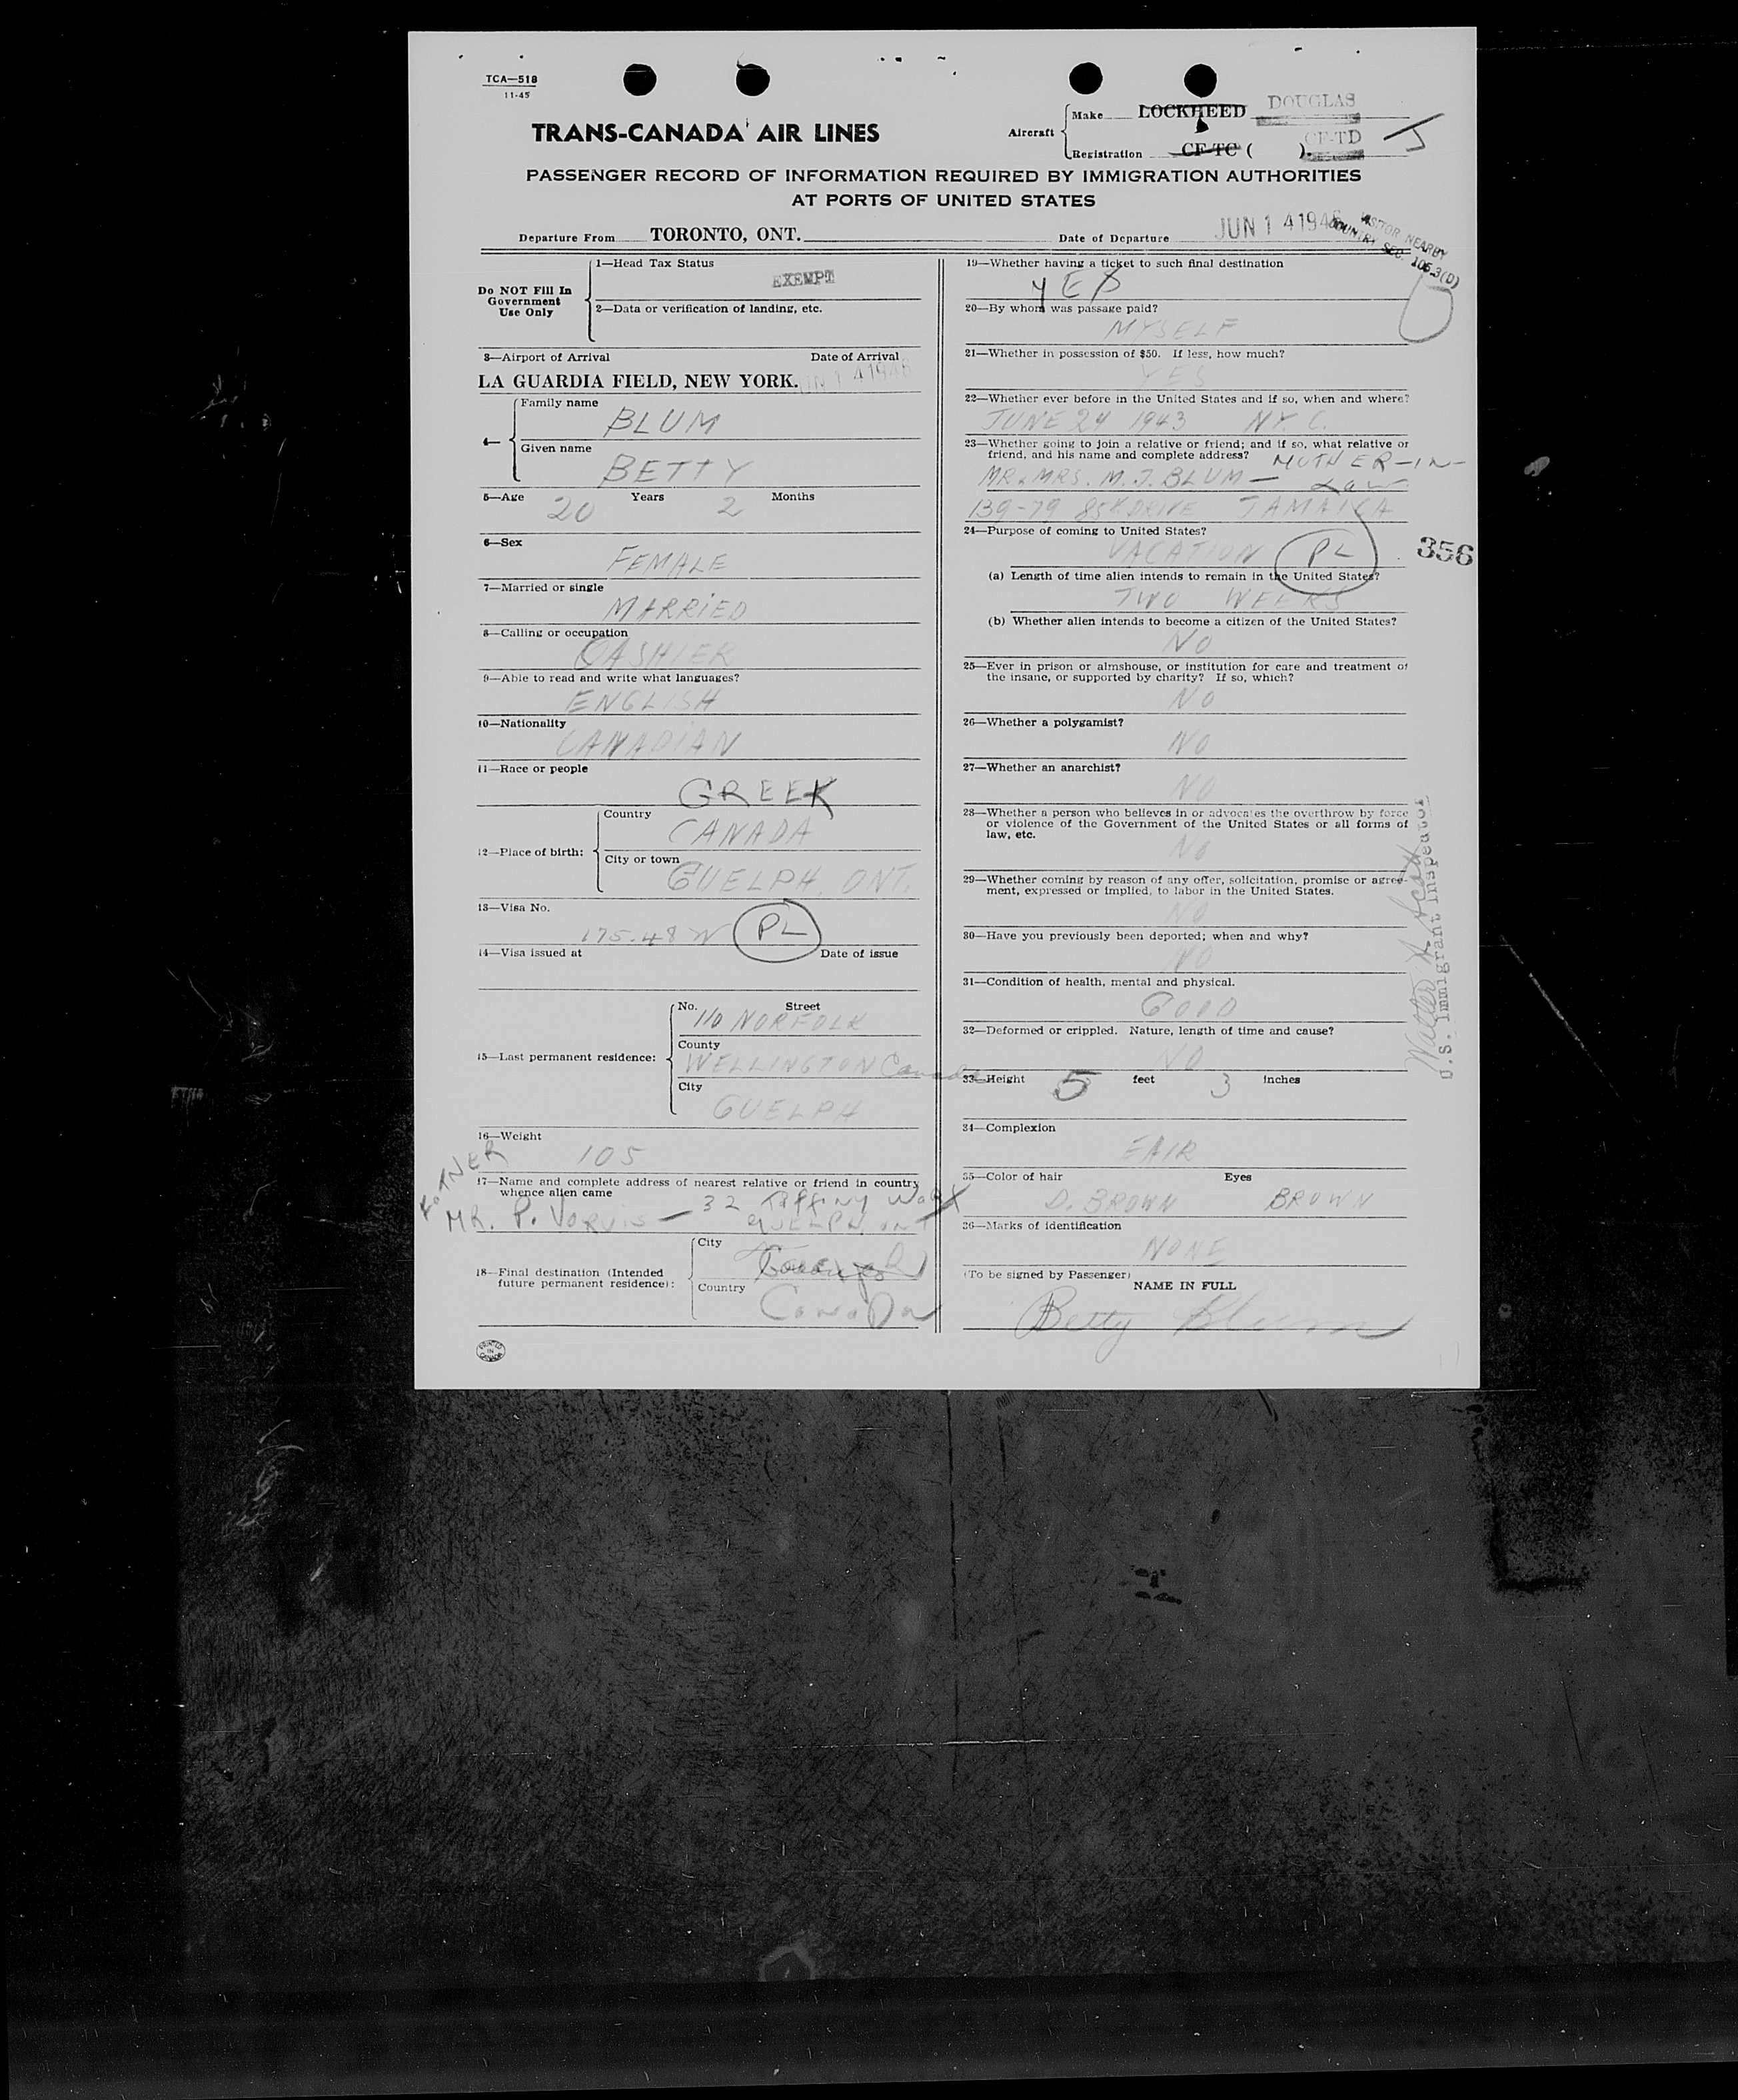 TCA—518
11-45
TRANS-CANADA AIR LINES
Aircraft
Make LOCKHEED DOUGLAS
Registration CF-TC ( ). CF-TD J
PASSENGER RECORD OF INFORMATION REQUIRED BY IMMIGRATION AUTHORITIES
AT PORTS OF UNITED STATES
Departure From TORONTO, ONT. Date of Departure JUN 14 1946
VISITOR NEARBY
COUNTRY SEC. 105.3(D)
Do NOT Fill In
Government
Use Only
1—Head Tax Status
EXEMPT
2—Data or verification of landing, etc.
3—Airport of Arrival Date of Arrival
LA GUARDIA FIELD, NEW YORK. JUN 14 1946
4—
Family name
BLUM
Given name
BETTY
5—Age 20 Years 2 Months
6—Sex
FEMALE
7—Married or single
MARRIED
8—Calling or occupation
CASHIER
9—Able to read and write what languages?
ENGLISH
10—Nationality
CANADIAN
11—Race or people
GREEK
12—Place of birth:
Country
CANADA
City or town
GUELPH, ONT.
13—Visa No.
175.48 PL
14—Visa issued at Date of issue
15—Last permanent residence:
No. Street
110 NORFOLK
County
WELLINGTON Canada
City
GUELPH
16—Weight
105
17—Name and complete address of nearest relative or friend in country
whence alien came
FATHER
MR. P. VORVIS — 32 Tiffiny WalK
GUELPH, ONT
18—Final destination (Intended
future permanent residence):
City
Country
Canada
PRINTED
IN
CANADA
19—Whether having a ticket to such final destination
YES
20—By whom was passage paid?
MYSELF
21—Whether in possession of $50. If less, how much?
YES
22—Whether ever before in the United States and if so, when and where?
JUNE 24 1943 N.Y.C.
23—Whether going to join a relative or friend; and if so, what relative or
friend, and his name and complete address? MOTHER-IN-
MR & MRS. M. J. BLUM — Law
139-79 85th DRIVE JAMAICA
24—Purpose of coming to United States?
VACATION PL
356
(a) Length of time alien intends to remain in the United States?
TWO WEEKS
(b) Whether alien intends to become a citizen of the United States?
NO
25—Ever in prison or almshouse, or institution for care and treatment of
the insane, or supported by charity? If so, which?
NO
26—Whether a polygamist?
NO
27—Whether an anarchist?
NO
28—Whether a person who believes in or advocates the overthrow by force
or violence of the Government of the United States or all forms of
law, etc.
NO
29—Whether coming by reason of any offer, solicitation, promise or agree-
ment, expressed or implied, to labor in the United States.
NO
30—Have you previously been deported; when and why?
NO
31—Condition of health, mental and physical.
GOOD
32—Deformed or crippled. Nature, length of time and cause?
NO
33—Height 5 feet 3 inches
34—Complexion
FAIR
35—Color of hair Eyes
D. BROWN BROWN
36—Marks of identification
NONE
(To be signed by Passenger)
NAME IN FULL
Betty Blum
Walter
U.S. Immigrant Inspector